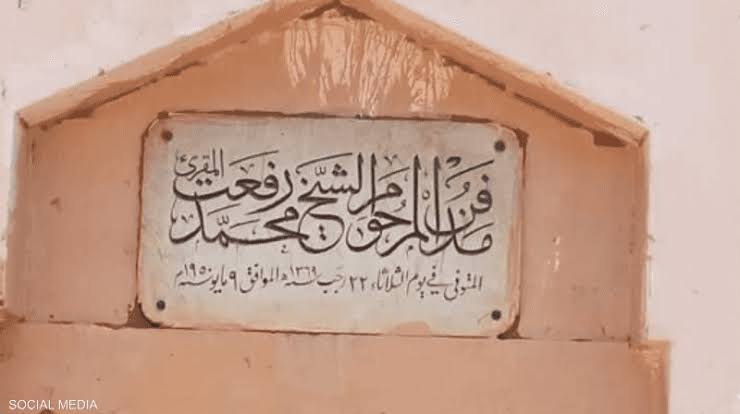 مدفن المرحوم الشيخ محمد رفعت المقرئ
المتوفى في يوم الثلاثاء ٢٢ رجب سنة ١٣٦٩ه الموافق ٩ مايو سنة ١٩٥٠م
SOCIAL MEDIA